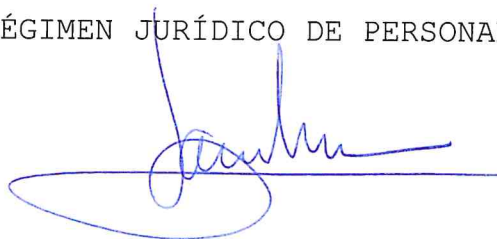 ÉGIMEN JURÍDICO DE PERSONA